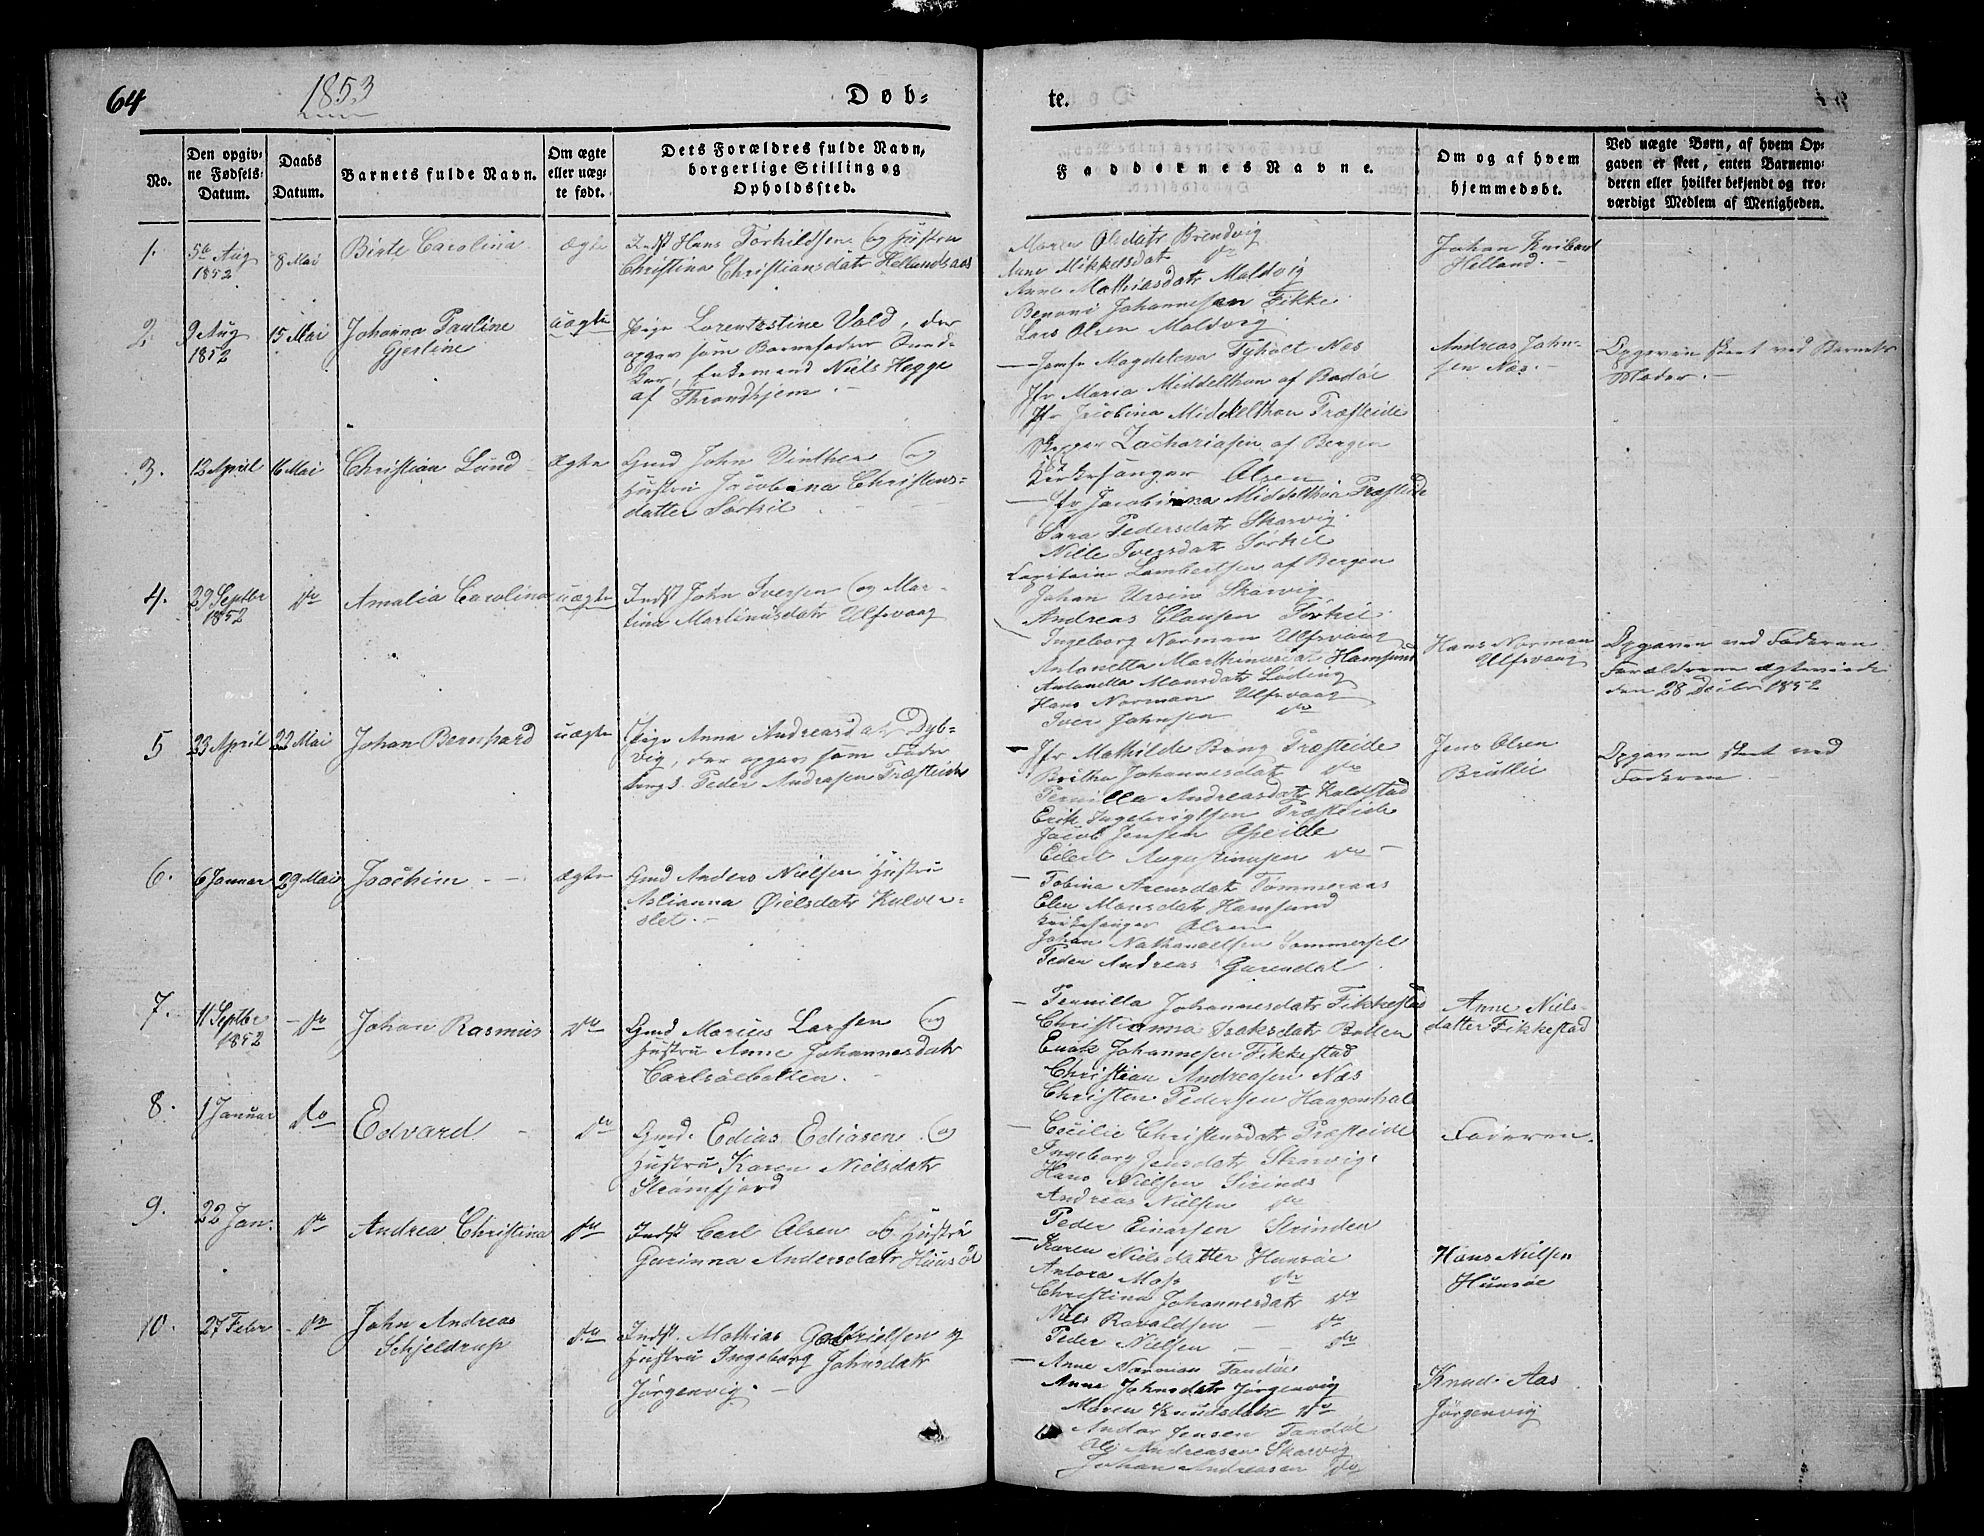 64
1853
Døb-
te.
No.
Den opgiv-
ne Fødsels-
Datum.
Daabs
Datum.
Barnets fulde Navn.
Om ægte
eller uæg-
te født.
Dets Forældres fulde Navn,
borgerlige Stilling og
Opholdssted.
Faddernes Navne.
Om og af hvem
hjemmedøbt.
Ved uægte Børn, af hvem Op-
gaven er skeet, enten Barnemo-
deren eller hvilket bekjendt og tro-
værdigt Medlem af Menigheden.
1.
5te Aug
1852
8 Mai
Birte Carolina
ægte
Indst Hans Torkildsen og Hustru
Christina Christiansdatr Hellandsaas
Maren Olsdatr Brendvig
Anne Mikkelsdat do
Anne Mathiasdatr Maldvig
Benoni Johannesen Fikke
Lars Olsen Maldvig
Johan
Helland.
2.
9 Aug
1852
15 Mai
Johanna Pauline
Gjertine
uægte
Pige Lorentestine Vold, der
opgav som Barnefader Sned-
ker, Enkemand Niels Hegge
af Throndhjem.
Magdelena Tyholt Næs
Jfr Maria Middelthon af Bodøe
Jfr Jacobina Middelthon Præsteide
Skipper Zachariasen af Bergen
Kirkesanger Olsen
Andreas John-
sen Næs.
Opgaven skeet ved Barnets
Moder.
3.
12 April
16 Mai
Christian Lund
Ægte
Gmd John Vinther og
Hustru Jacobina Christens-
datter Sørkil
Jfr Jacobina Middelthon Præsteide
Sara Pedersdatr Skarvig
Nille Iversdatr Sørkil
Capitain Lambertsen af Bergen
Johan Ursin Skarvig
Andreas Clausen Sørkil
4.
29 Septbr
1852
do
Amalia Carolina
uægte
Indst John Iversen og Mar-
tina Martinusdatr Ulfsvaag
Ingeborg Norman Ulfsvaag
Antonetta Marthinusdat Hamsund
Antonetta Monsdatr Løding
Hans Norman Ulfsvaag
Iver Johnsen do
Hans Norman
Ulfsvaag
Opgaven ved Faderen
Forældrene ægteviede
den 28 Decbr 1852
5
23 April
22 Mai
Johan Bernhard
uægte
Pige Anna Andreasdat Dyb-
vig, der opgav som Fader
Ungk. Peder Andreasen Præsteide
Jfr Mathilde Bong Præsteide
Britha Johannesdat do
Pernilla Andreasdatr Kaldstad
Erik Ingebrigtsen Præsteide
Jacob Jensen Opeide
Eilert Augustinusen do
Jens Olsen
Opgaven skeet ved
Faderen.
6.
6 Januar
29 Mai
Joachim
ægte
Gmd Anders Nielsen Hustru
Aslianna Øielsdatr Kulver-
slet.
Tobina Arensdat Tømmeraas
Elen Monsdatr Hamsund
Kirkesanger Olsen
Johan Nathanaelsen Sommersel
Peder Andreas
7.
11 Septbr
1852
do
Johan Rasmus
do
Gmd Marius Larsen og
Hustru Anne Johannesdatr
Carlsøebotten.
Pernilla Johannesdatr Fikkestad
Christianna Isaksdatr Botten
Enok Johannesen Fikkestad
Christian Andreasen Næs
Christen Pedersen Haagenhal
Anne Niels
datter Fikkestad
8.
1 Januar
do
Edvard
do
Gmd. Edias Ediasen og
Hustru Karen Nielsdatr
Strømfjord
Cecilie Christensdatr Præsteide
Ingeborg Jensdatr Skarvig
Hans Nielsen
Andreas Nielsen do
Peder Einarsen Strinden
Faderen.
9.
22 Jan.
do
Andrea Christina
do
Indst Carl Olsen og Hustru
Gurinna Andersdatr Hunsøe
Karen Nielsdatter Hunsøe
Antora Moss do
Christina Johannesdatr do
Niels Ravaldsen do
Peder Nielsen do
Hans Nielsen
Hunsøe
10.
27 Febr
do
John Andreas
Schjeldrup
do
Indst. Mathias Gabrielsen og
Hustru Ingeborg Johnsdatr
Jørgenvig.
Anne Norman Tandøe
Anne Johnsdatr Jørgenvig
Maren Knudsdatr do
Andor Jensen Tandøe
Ole Andreasen Skarvig
Johan Andreasen do
Knud Aas
Jørgenvig